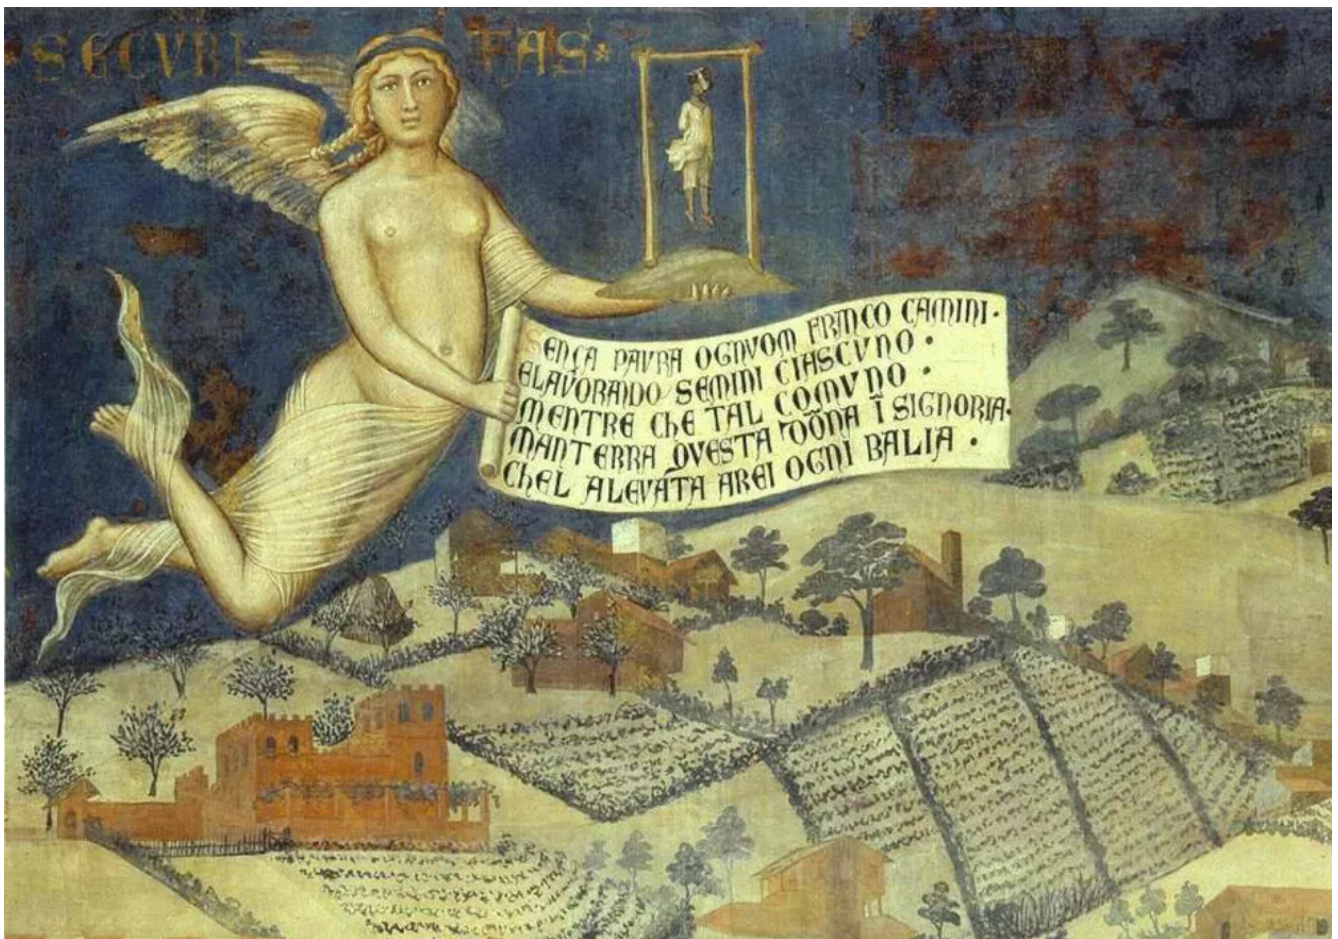 SECVRITAS
SENÇA PAVRA OGNVOM FRANCO CAMINI·
ELAVORANDO SEMINI CIASCVNO·
MENTRE CHE TAL COMVNO·
MANTERRA QVESTA DŌNA Ī SIGNORIA·
CHEL ALEVATA AREI OGNI BALIA·